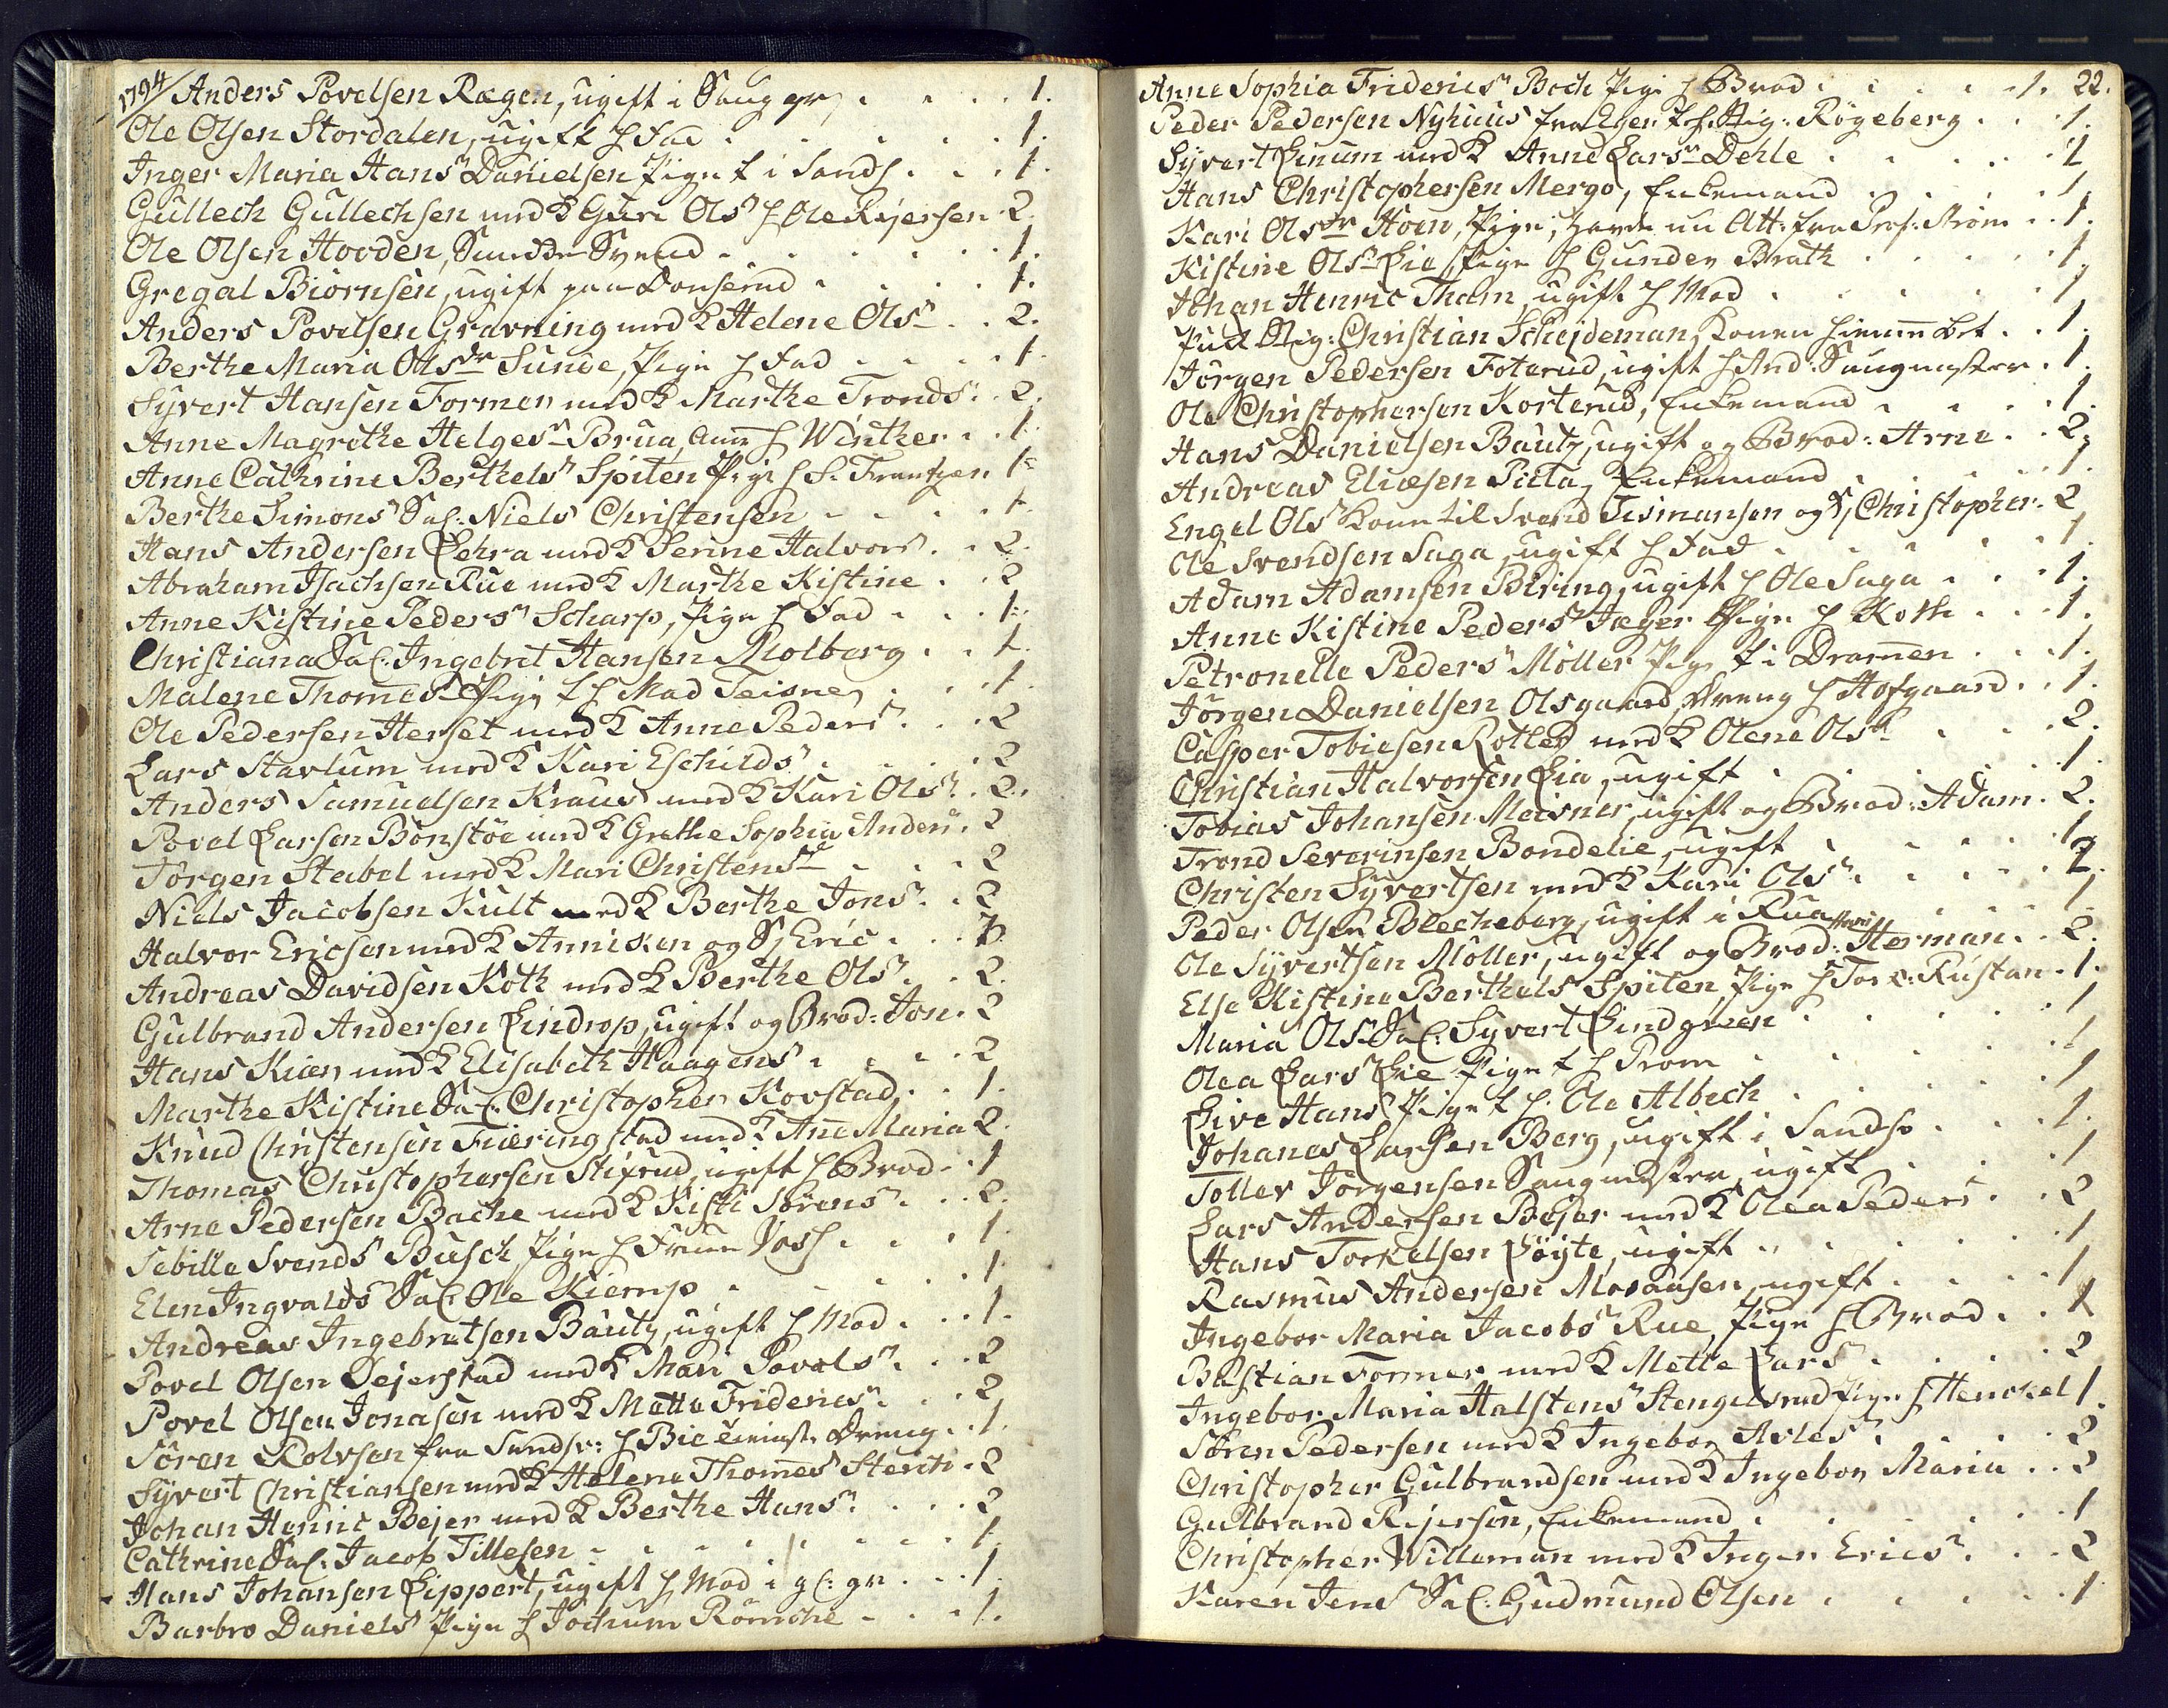 1794
Anders Povelsen Ragen, ugift i Saug gr 1.
Ole Olsen Stordalen, ugift h Fad 1.
Inger Maria Hans Danielsen Pige t i Sands 1.
Gullech Gullechsen med K Guri Ols h Ole Rejersen 2.
Ole Olsen Hovden, Svend 1.
Gregal Biörnsen, ugift paa Donserud 1.
Anders Povelsen Gravning med K Helene Ols 2.
Berthe Maria Olsdr Sunde, Pige h Fad 1.
Syvert Hansen Formen med K Marthe Tronds 2.
Anne Magrethe Helges Brua, h Winther 1.
Anne Cathrine Berthels Spiten Pige h S. Frantzen 1
Berthe Simons Sal. Niels Christensen 1
Hans Andersen Lehra med K Serine Halvors 2.
Abraham Isachsen Rue med K Marthe Kistine 2
Anne Kistine Peders Scharp, Pige h Fad 1.
Christiana Sal. Ingebret Hansen Molberg 1.
Malene Thomes Pige t h Mad Teisner 1.
Ole Pedersen Herset med K Anne Peders 2
Lars Stavlum med K Kari Eschilds 2
Anders Samuelsen Kraus med K Kari Ols 2.
Povel Larsen Bonstöe med K Grethe Sophia Anders 2
Jörgen Stabel med K Mari Christens 2
Niels Jacobsen Kult med K Berthe Jons 2
Halvor Ericsen med K Anniken og S Eric 3
Andreas Davidsen Koth med K Berthe Ols 2.
Gulbrand Andersen Lindrop, ugift og Brod: Jon. 2
Hans Kiær med K Elisabeth Haagens 2
Marthe Kistine Sal. Christopher Kovstad 1.
Knud Christensen Fiæringstad med K Ane Maria 2.
Thomas Christophersen Stixrud, ugift h Brod 1
Arne Pedersen Bache med K Kisti Sörens 2.
Sebille Svends Busch Pige h Frue Voss 1.
Elen Ingvalds Sal. Ole Kiemp 1.
Andreas Ingebretsen Bautz, ugift h Mod 1.
Povel Olsen Dejerstad med K Mari Povels 2
Povel Olsen Jonasen med K Mette Frideries 2
Sören Rolvsen fra Sandsv: h Bie Dreng 1.
Syvert Christiansen med K Helene Thomes Stenti 2
Johan Henric Bejer med K Berthe Hans 2
Cathrine Sal. Jacob Tillesen 1.
Hans Johansen Lippert, ugift h Mod i gl: gr 1.
Barbro Daniels Pige h Jochum Römche 1.
Anne Sophia Frideries Boch Pige h Brod 1. 22.
Peder Pedersen Nyhuus fra Eger h Sig: Rögeberg 1.
Syvert Linum med K Anne Lars Dehle 2
Hans Christophersen Mergo, Enkemand 1.
Kari Olsdr Hoen, Pige, havde nu Att. fra Ström 1.
Kistine Ols Lie Pige h Gunder Brath 1.
Johan Henric Tham, ugift h Mod 1
Sig: Christian Schejdeman, Konen 1.
Jörgen Pedersen Foterud, ugift h And. Saugmester 1.
Ole Christophersen Korterud, Enkemand 1.
Hans Danielsen Bautz, ugift og Brod: Arne 2.
Andreas Eliæsen Pieta, Enkemand 1.
Engel Ols Kone til Svend Tismansen og S. Christopher 2
Ole Svendsen Saga, ugift h Fad 1.
Adam Adamsen Bering, ugift h Ole Saga 1.
Anne Kistine Peders Jæger Pige h Koth 1.
Petronelle Peders Möller Pige t i Dramen 1.
Jörgen Danielsen Olsgaard, Dreng h Hofgaard 1.
Casper Tobiesen Rotled med K Olene Ols 2.
Christian Halvorsen Lia, ugift 1.
Tobias Johansen Meisner, ugift og Brod: Adam 2.
Trond Severinsen Bondelie, ugift 1.
Christen Syvertsen med K Kari Ols 2.
Peder Olsen Blecheberg, ugift i Rua 1
Ole Syvertsen Möller, ugift og Brod: Herman 2.
Else Kistine Berthels Spiten, Pige h Tor: Rustan 1.
Maria Ols Sal. Syvert Lindgreen 1
Olea Lars Lie Pige t h Prom 1
Live Hans Pige t h. Ole Albech 1
Johanes Larsen Berg, ugift i Sandsv 1.
Tollev Jörgensen Saugmester, ugift 1
Lars Andersen Bejer med K Olea Peders 2
Hans Torkelsen Löyte, ugift 1
Rasmus Andersen Mosaasen, ugift 1
Ingebor Maria Jacobs Rue, Pige h Brod 1
Bastian Former med K Mette Lars 2
Ingebor Maria Halstens Stengelsrud Pige h Henckel 1.
Sören Pedersen med K Ingebor Arles 2
Christopher Gulbrandsen med K Ingebor Maria 2
Gulbrand Rejersen, Enkemand 1
Christopher Willeman med K Inger Erics 2
Karen Jens Sal. Gudmund Olsen 1